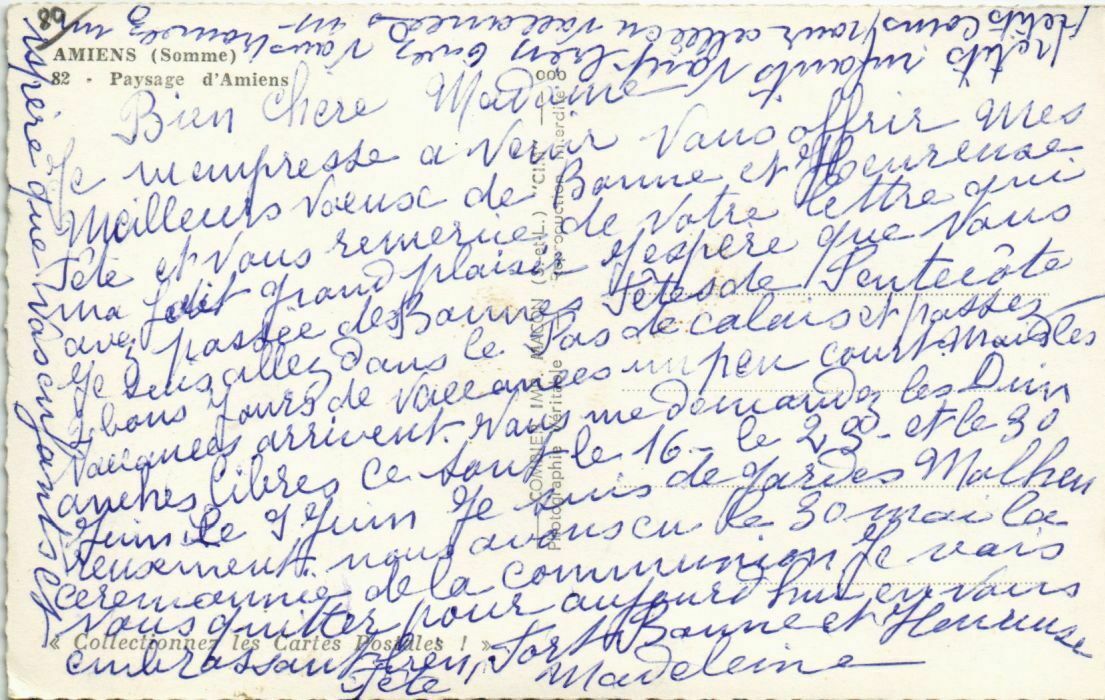 89
AMIENS (Somme)
82 - Paysage d'Amiens
Bien Chère Madame
Je m'empresse a venir Vous offrir mes
Meilleurs Voeux de Bonne et Heureuse
Fête et Vous remercie de Votre lettre qui
ma fait grand plaisir j'espère que Vous
avez passée des Bonnes Fêtes de Pentecôte
Je suis allez dans le Pas de calais et passez
bons Jours de Vaccances un peu court Mais les
Vaccances arrivent. Vous me demandez les Dim
anches libres ce sont le 16 - le 23 - et le 30
Juin Le 9 Juin Je suis de gardes Malheu
reusement. nous avons eu le 30 mai la
ceremonnie de la communion Je vais
Vous quitter pour aujourd'hui en Vous
embrassant bien Fort Bonne et Heureuse
Fête Madeleine
espère que Vos enfants et
petits enfants Vont bien avez Vous trouvez un
petits coins pour allée en Vaccances
COMBIER IMP. MACON (S.-et-L.) "CIM"
Photographie Véritable - Reproduction interdite
« Collectionnez les Cartes Postales ! »